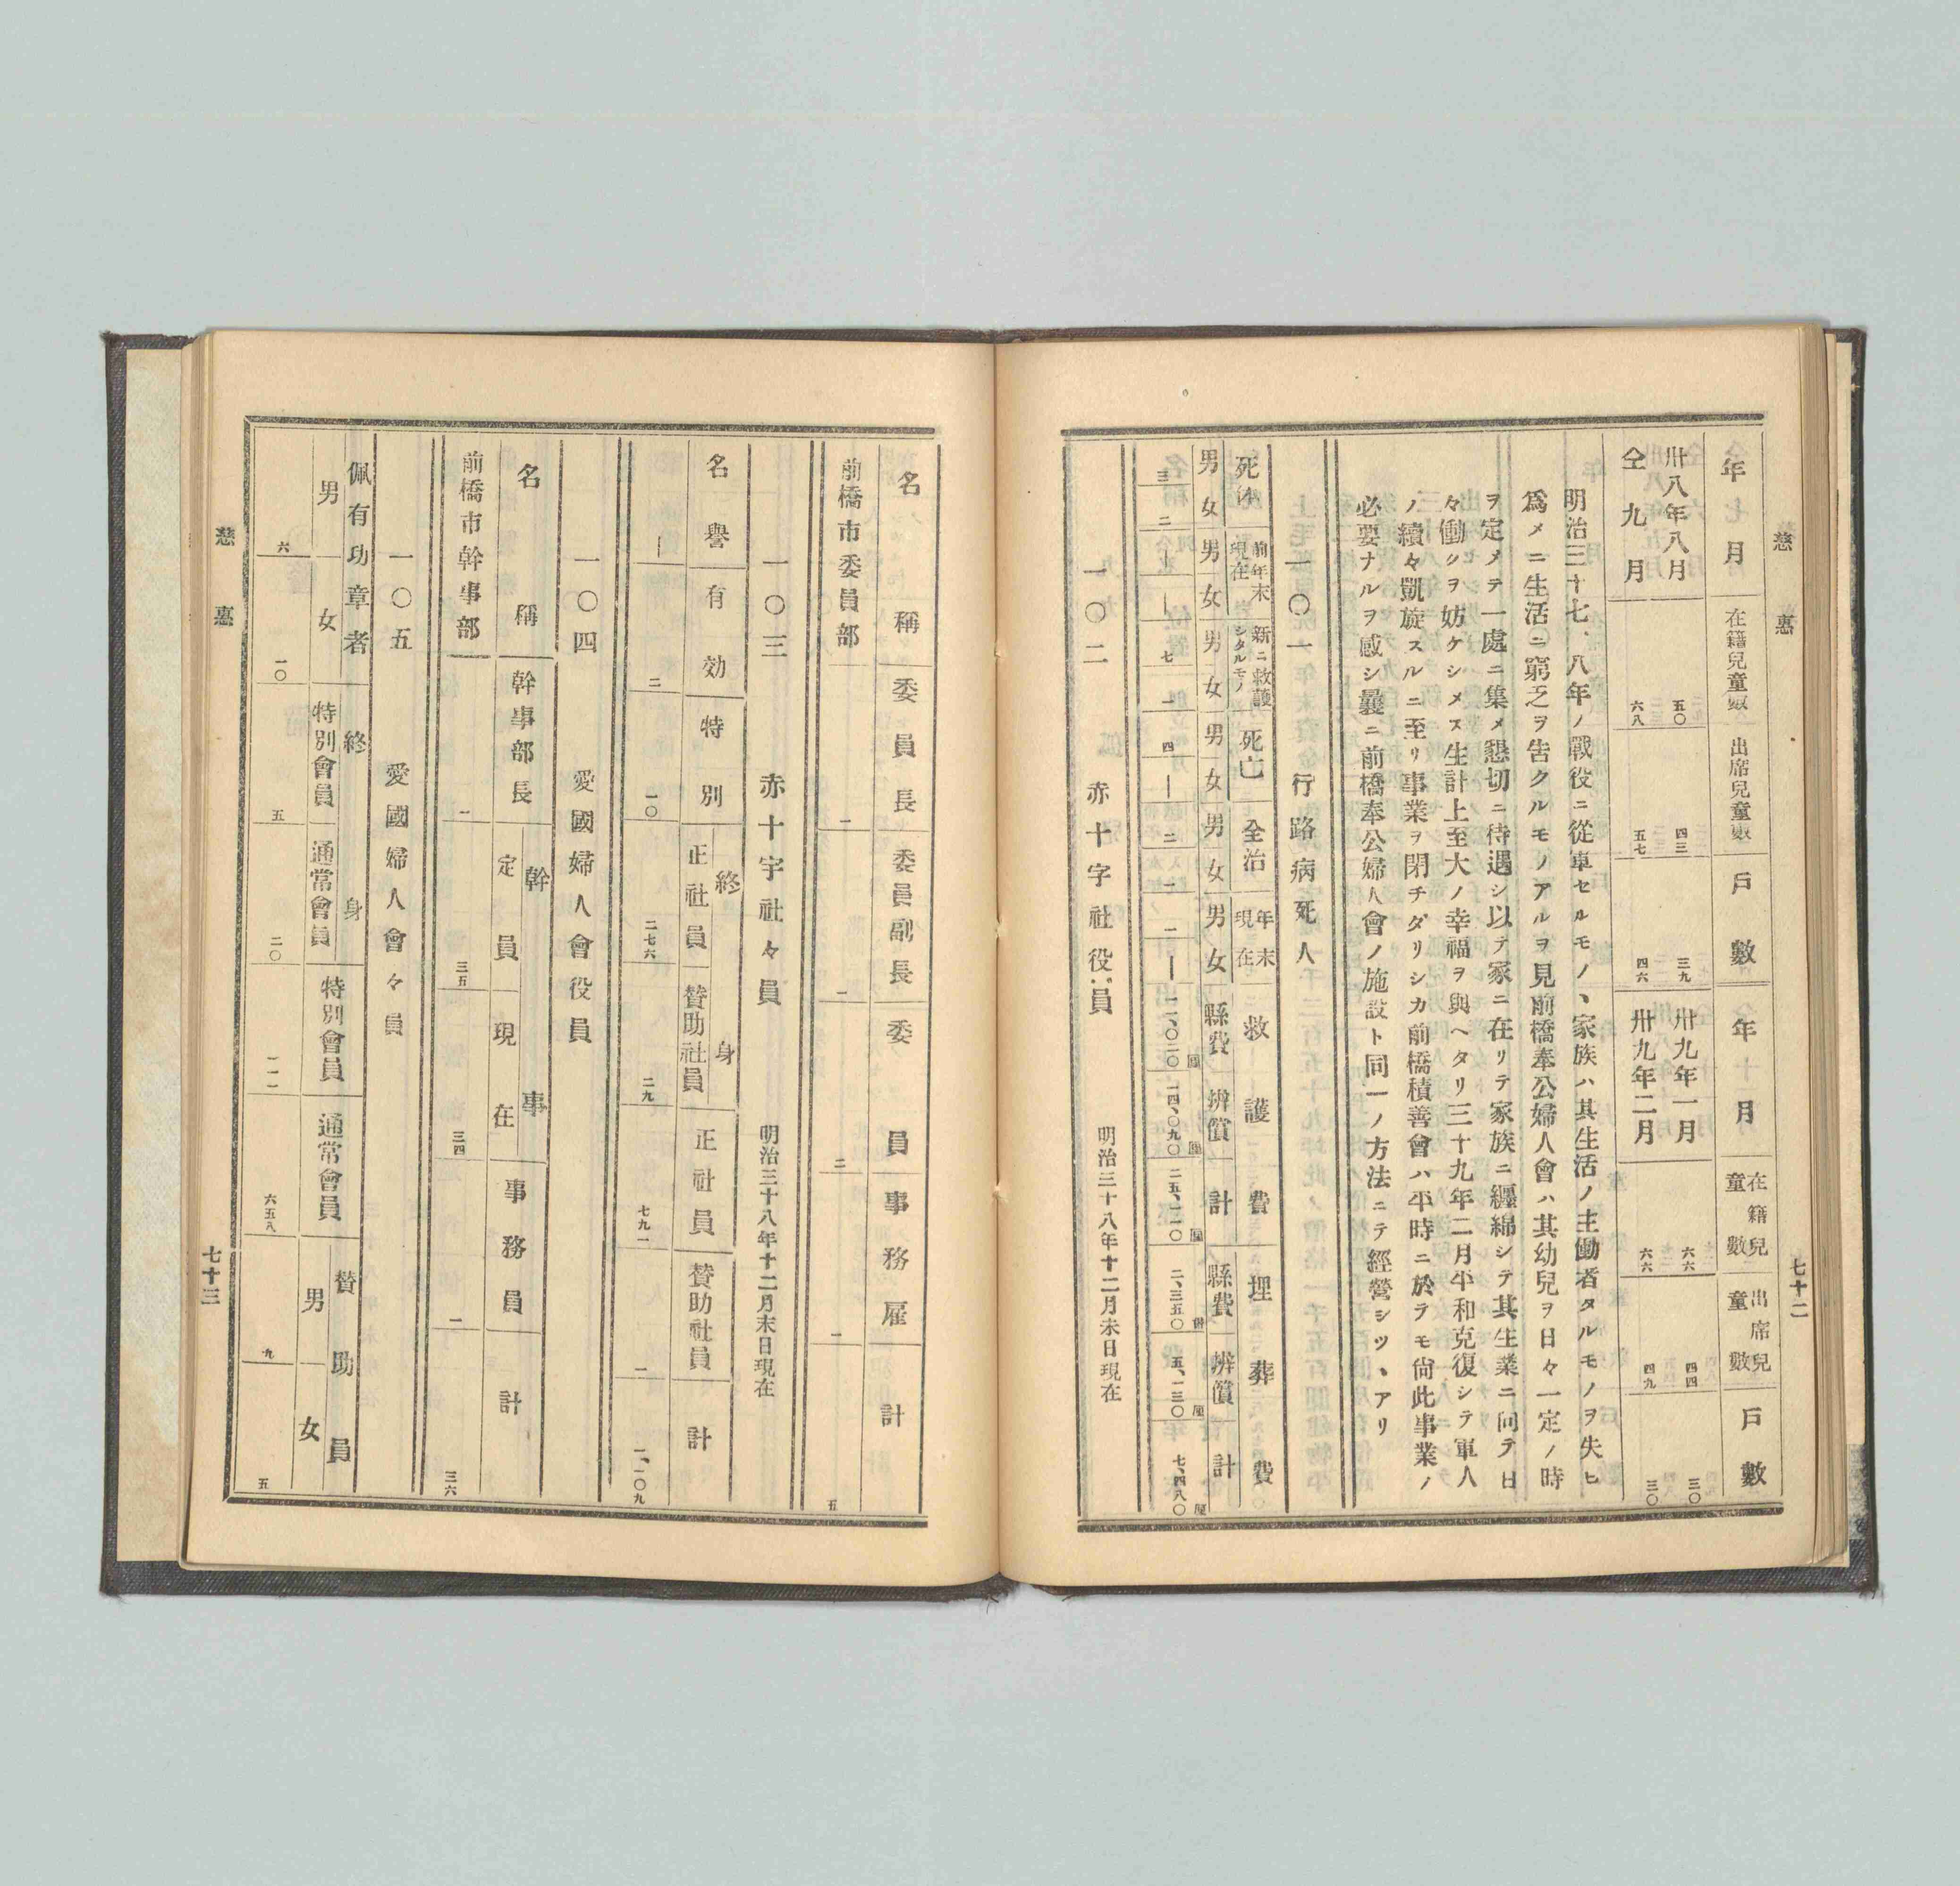 慈惠
七十二
年月
在籍兒童數
出席兒童數
戶數
年月
在籍兒童數
出席兒童數
戶數
卅八年八月
五〇
四三
三九
卅九年一月
六六
四四
三〇
仝九月
六八
五七
四六
卅九年二月
六六
四九
三〇
明治三十七、八年ノ戰役ニ從車セルモノヽ家族ハ其生活ノ主働者タルモノヲ失ヒ
爲メニ生活ニ窮乏ヲ吿クルモノアルヲ見前橋奉公婦人會ハ其幼兒ヲ日々一定ノ時
ヲ定メテ一處ニ集メ懇切ニ待遇シ以テ家ニ在リテ家族ニ纒綿シテ其生業ニ向テ日
々働クヲ妨ケシメス生計上至大ノ幸福ヲ與ヘタリ三十九年二月平和克復シテ軍人
ノ續々凱旋スルニ至リ事業ヲ閉チダリシカ前橋積善會ハ平時ニ於ラモ尙此事業ノ
必要ナルヲ感シ曩ニ前橋奉公婦人會ノ施設ト同一ノ方法ニテ經營シツヽアリ
一〇一 行路病死人
死体
前年末現在
新ニ救護シタルモノ
死亡
全治
年末現在
救護費
埋葬費
男 女 男 女 男 女 男 女 男 女 男 女 縣費 辨償 計 縣費 辨償 計
三 二 ー ー 七 一 四 ー 二 一 一 ー 一一、〇二〇 一四、〇九〇 二五、一一〇 二、三五〇 五、一三〇 七、四八〇
一〇二 赤十字社役員 明治三十八年十二月末日現在
名稱
委員長
委員副長
委員
事務雇
計
前橋市委員部
一
一
二
一
五
一〇三 赤十字社々員 明治三十八年十二月末日現在
名譽
有効
特別
終身
正社員
賛助社員
正社員
賛助社員
計
ー
二
一〇
二七六
二九
七九一
一
一、一〇九
一〇四 愛國婦人會役員
名稱
幹事部長
幹事
定員
現在
事務員
計
前橋市幹事部
一
三五
三四
一
三六
一〇五 愛國婦人會々員
佩有功章者
終身
特別會員
通常會員
賛助員
男
女
特別會員
通常會員
男
女
六
一〇
五
二〇
一一一
六五八
九
五
慈惠
七十三